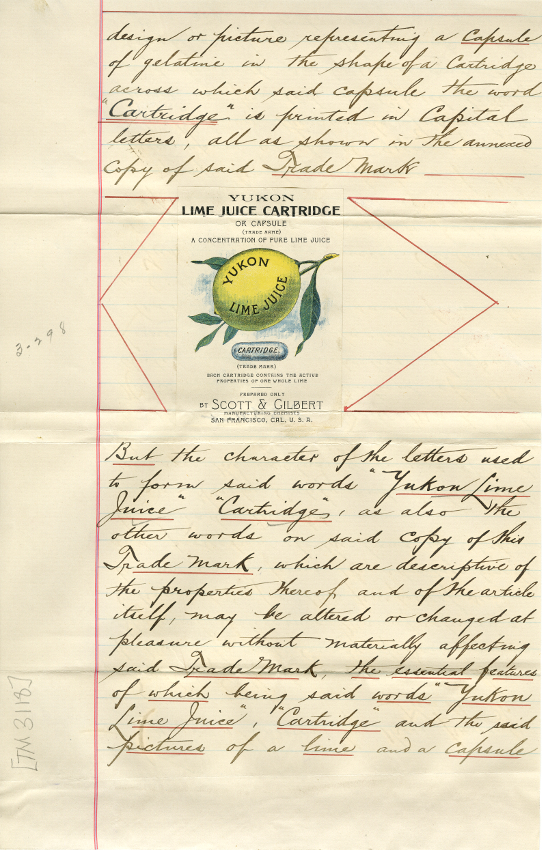 design or picture representing a Capsule
of gelatine in the shape of a Cartridge
across which said capsule the word
"Cartridge" is printed in Capital
letters, all as shown in the annexed
Copy of said Trade Mark
YUKON
LIME JUICE CARTRIDGE
OR CAPSULE
(TRADE NAME)
A CONCENTRATION OF PURE LIME JUICE
YUKON
LIME JUICE
CARTRIDGE.
(TRADE MARK)
EACH CARTRIDGE CONTAINS THE ACTIVE
PROPERTIES OF ONE WHOLE LIME
PREPARED ONLY
BY SCOTT & GILBERT
MANUFACTURING CHEMISTS
SAN FRANCISCO, CAL. U. S. A.
3-298
But the character of the letters used
to form said words "Yukon Lime
Juice" "Cartridge", as also the
other words on said copy of this
Trade Mark, which are descriptive of
the properties thereof, and of the article
itself, may be altered or changed at
pleasure without materially affecting
said Trade Mark, the essential features
of which being said words "Yukon
Lime Juice", "Cartridge" and the said
pictures of a lime and a capsule
[TM 3118]